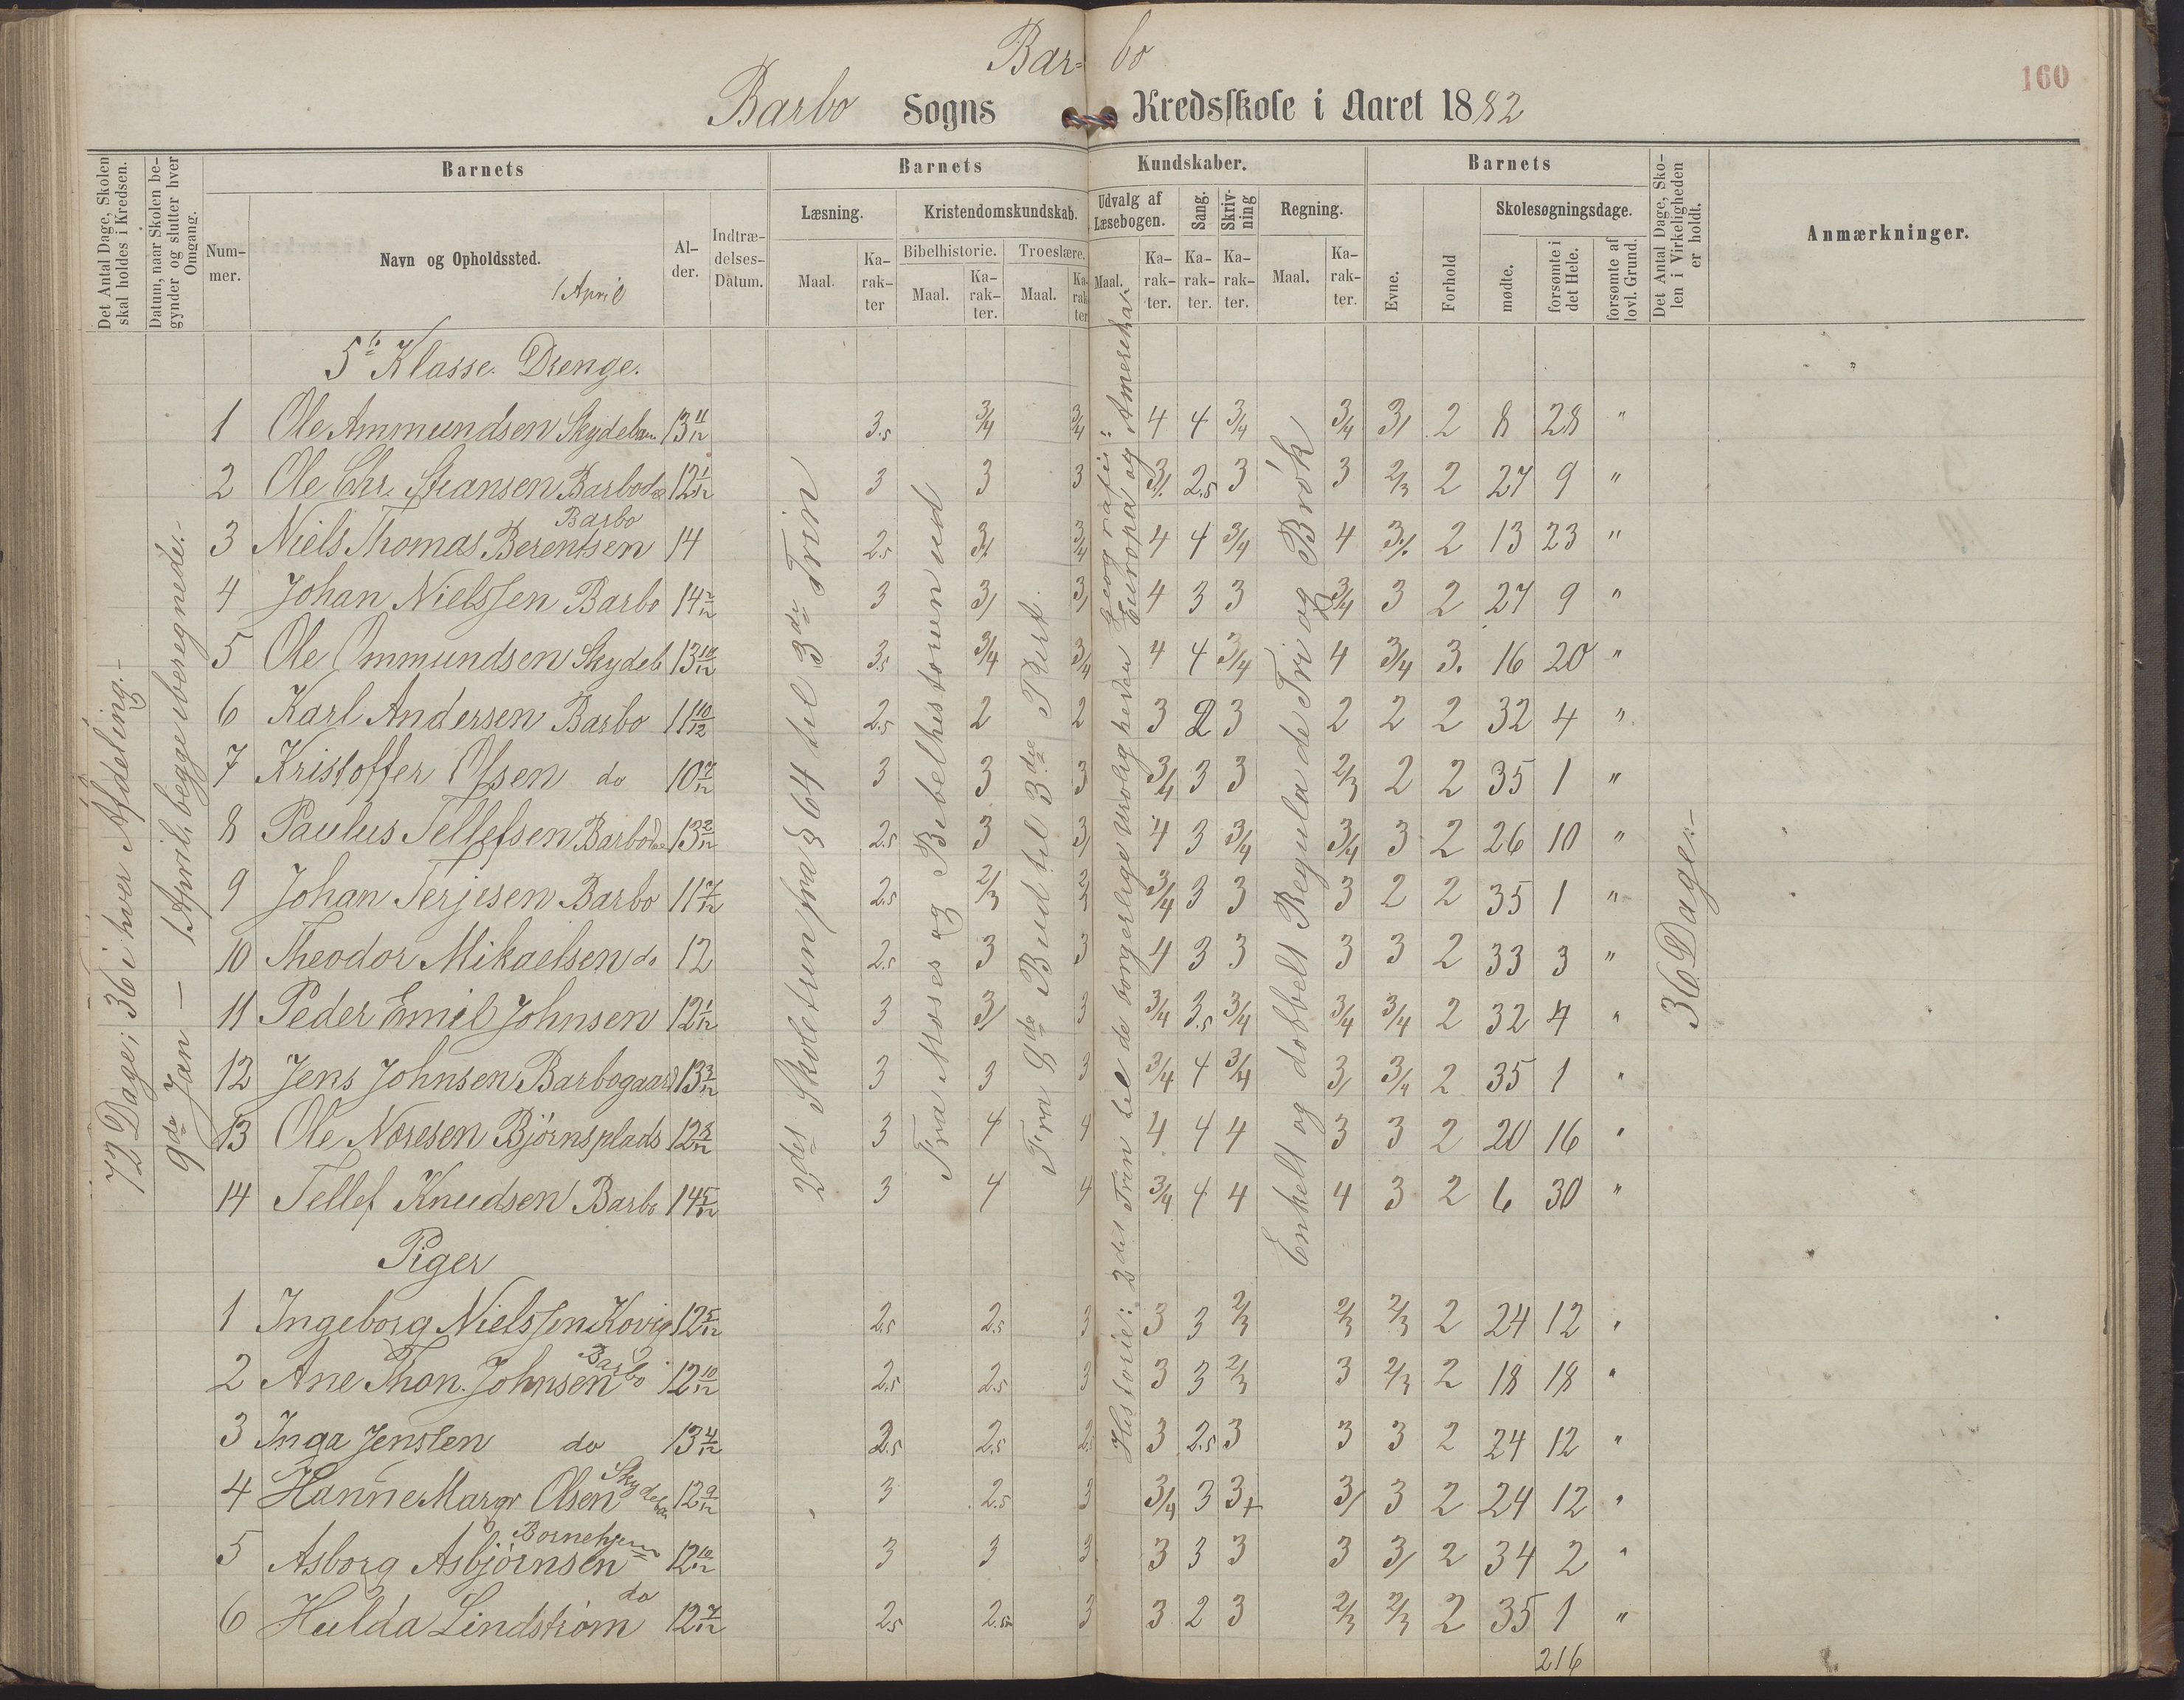 Bar= bo
160
Barbo Sogns Kredsskole i Aaret 1882
Det Antal Dage, Skolen skal holdes i Kredsen.
Datum, naar Skolen begynder og slutter hver Omgang.
Barnets
Nummer.
Navn og Opholdssted.
1 April
Alder.
Indtrædelses-Datum.
Barnets Kundskaber.
Læsning.
Maal.
Karakter
Kristendomskundskab.
Bibelhistorie.
Maal.
Karakter.
Troeslære.
Maal.
Karakter
Udvalg af Læsebogen.
Maal.
Karakter.
Sang.
Karakter.
Skrivning
Karakter.
Regning.
Maal.
Karakter.
Barnets
Evne.
Forhold
Skolesøgningsdage.
mødte.
forsømte i det Hele.
forsømte af lovl. Grund.
Det Antal Dage, Skolen i Virkeligheden er holdt.
Anmærkninger.
72 Dage; 36 i hver Afdeling.-
9de Jan - 1 April, begge iberegnede.-
2det Skoletrin fra § 64 til 3die Trin
Fra Moses og Bibelhistorien ud
Fra 8de Bud til 3die Part.
Historie: 2det Trin til de borgerlige Urolig heder
Geografi: Europa og Amerika
Enkelt og dobbelt Regula de Tri og Brøk
36 Dage.-
5te Klasse. Drenge.
1 Ole Ammundsen 13 11/12 3.5 3/4 3/4 4 4 3/4 3/4 3/ 2 8 28 "
2 Ole Chr. Stiansen 12 1/12 3 3 3 3/. 2.5 3 3 2/3 2 27 9 "
3 Niels Thomas Berentsen Barbo 14 2.5 3/. 3/4 4 4 3/4 4 3/. 2 13 23 "
4 Johan Nielssen Barbo 14 2/12 3 3/ 3/ 4 3 3 3/4 3 2 27 9 "
5 Ole Ommundsen Skydeb 13 10/12 3.5 3/4 3/4 4 4 3/4 4 3/4 3. 16 20 "
6 Karl Andersen Barbo 11 10/12 2.5 2 2 3 2 3 2 2 2 32 4 "
7 Kristoffer Olsen do 10 7/12 3 3 3 3/4 3 3 2/3 2 2 35 1 "
8 Paulus Tellefsen 13 2/12 2.5 3 3/ 4 3 3/4 3/4 3 2 26 10 "
9 Johan Terjesen Barbo 11 7/12 2.5 2/3 2/3 3/4 3 3 3 2 2 35 1 "
10 Theodor Mikaelsen do 12 2.5 3 3 4 3 3 3 3 2 33 3 "
11 Peder Emil Johnsen 12 1/12 3 3/ 3 3/4 3.5 3/4 3/4 3/4 2 32 4 "
12 Jens Johnsen Barbogaard 13 3/12 3 3 3 3/4 4 3/4 3/ 3/4 2 35 1 "
13 Ole Noresen Bjørnsplads 12 8/12 3 4 4 4 4 4 3 3 2 20 16 "
14 Tellef Knudsen Barbo 14 5/12 3 4 4 3/4 4 4 4 3 2 6 30 "
Piger
1 Ingeborg Nielssen Kovig 12 5/12 2.5 2.5 3 3 3 2/3 2/3 2/3 2 24 12 "
2 Ane Thon. Johnsen Barbo 12 10/12 2.5 2.5 3 3 3 2/3 3 2/3 2 18 18 "
3 Inga Jensen do 13 4/12 2.5 2.5 2.5 3 2.5 3 3 3 2 24 12 "
4 Hanne Margr Olsen 12 9/12 3 2.5 3 3/4 3 3+ 3/ 3 2 24 12 "
5 Asborg Asbjørnsen Bornehjem 12 10/12 3 3 3 3 3 3 3 3/ 2 34 2 "
6 Hulda Lindstrøm do 12 7/12 2.5 2.5 3 3 2 3 2/3 2/3 2 35 1 "
216